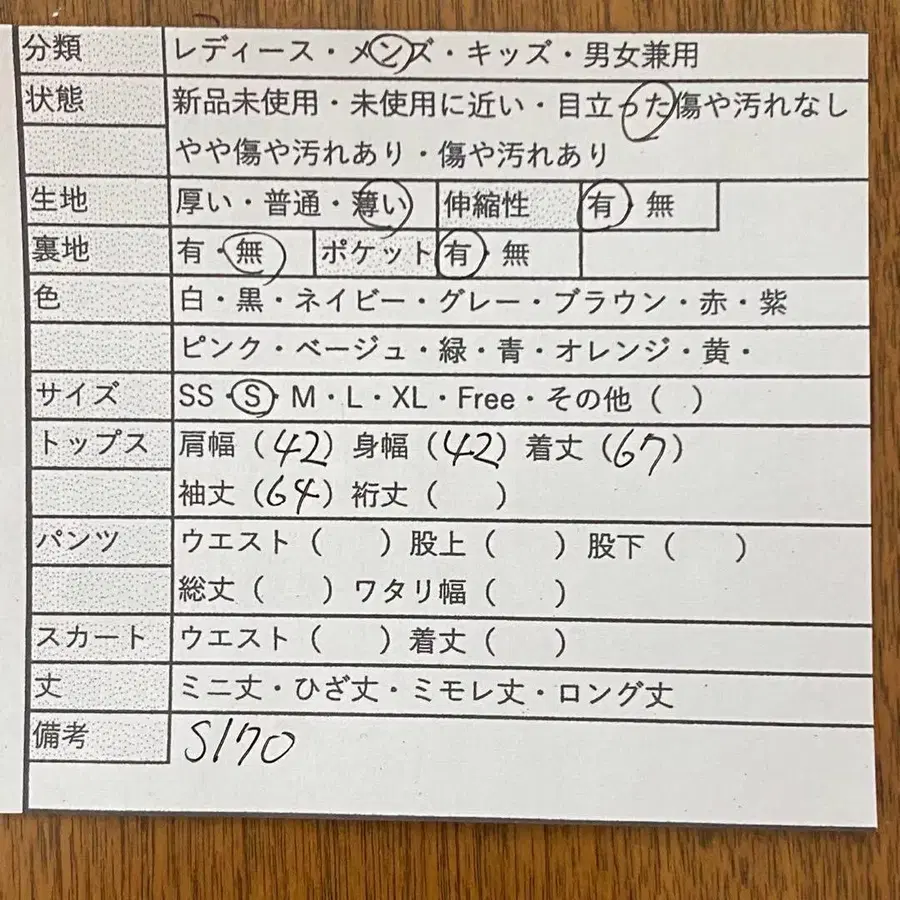 分類 レディース・メンズ・キッズ・男女兼用
状態 新品未使用・未使用に近い・目立った傷や汚れなし
やや傷や汚れあり・傷や汚れあり
生地 厚い・普通・薄い 伸縮性 有・無
裏地 有・無 ポケット 有・無
色 白・黒・ネイビー・グレー・ブラウン・赤・紫
ピンク・ベージュ・緑・青・オレンジ・黄・
サイズ SS・S・M・L・XL・Free・その他（ ）
トップス 肩幅（42）身幅（42）着丈（67）
袖丈（64）裄丈（ ）
パンツ ウエスト（ ）股上（ ）股下（ ）
総丈（ ）ワタリ幅（ ）
スカート ウエスト（ ）着丈（ ）
丈 ミニ丈・ひざ丈・ミモレ丈・ロング丈
備考 S170